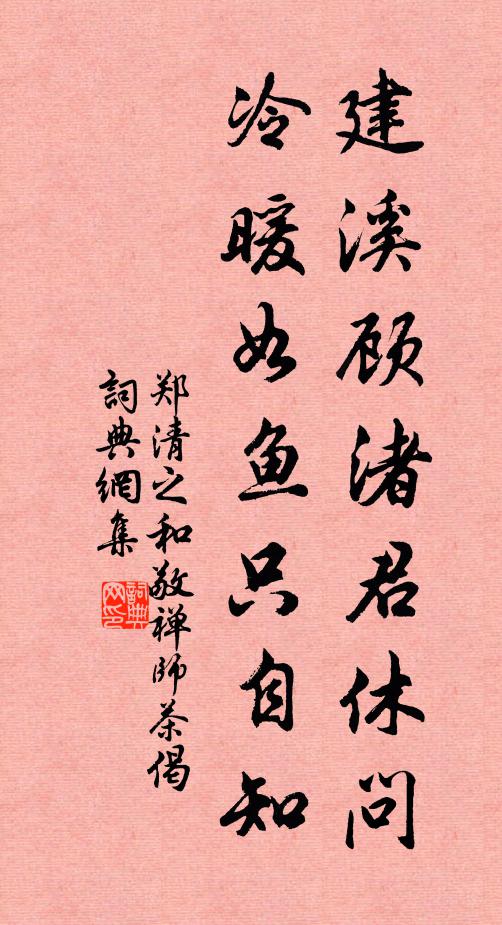 建溪顾渚君休问
冷暖如鱼只自知
郑清之和敬禅师茶偈
詞典網集
詞典网印